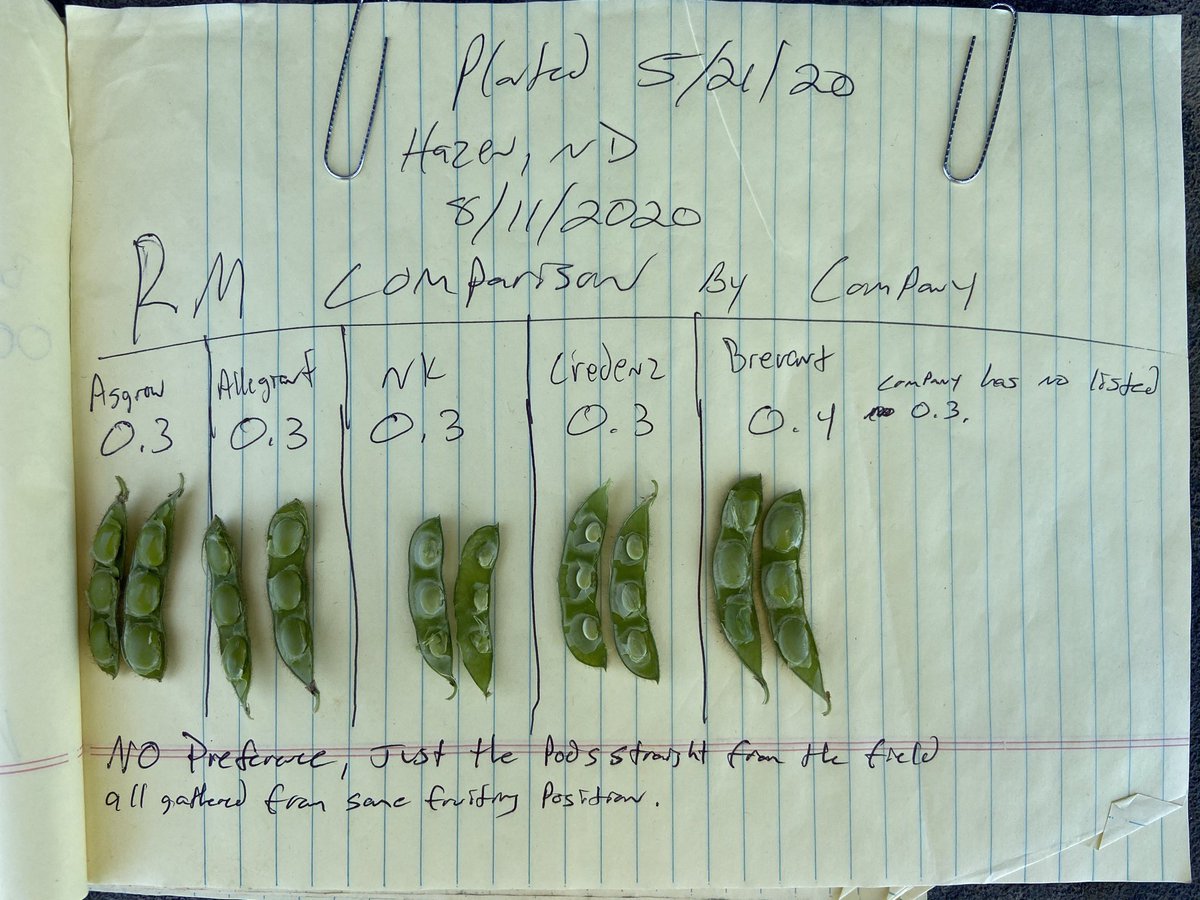 Planted 5/21/20
Hazen, ND
8/11/2020
RM Comparison By Company
Asgrow
0.3
Allegiant
0.3
NK
0.3
Credenz
0.3
Brevant
0.4
Company has no listed
0.3.
NO Preference, Just the Pods straight from the field
all gathered from same fruiting Position.